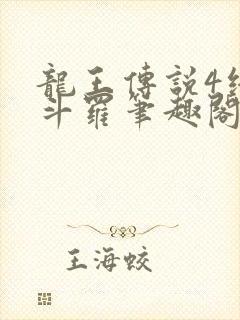 龍王傳説4
斗羅筆趣閣
王海蛟